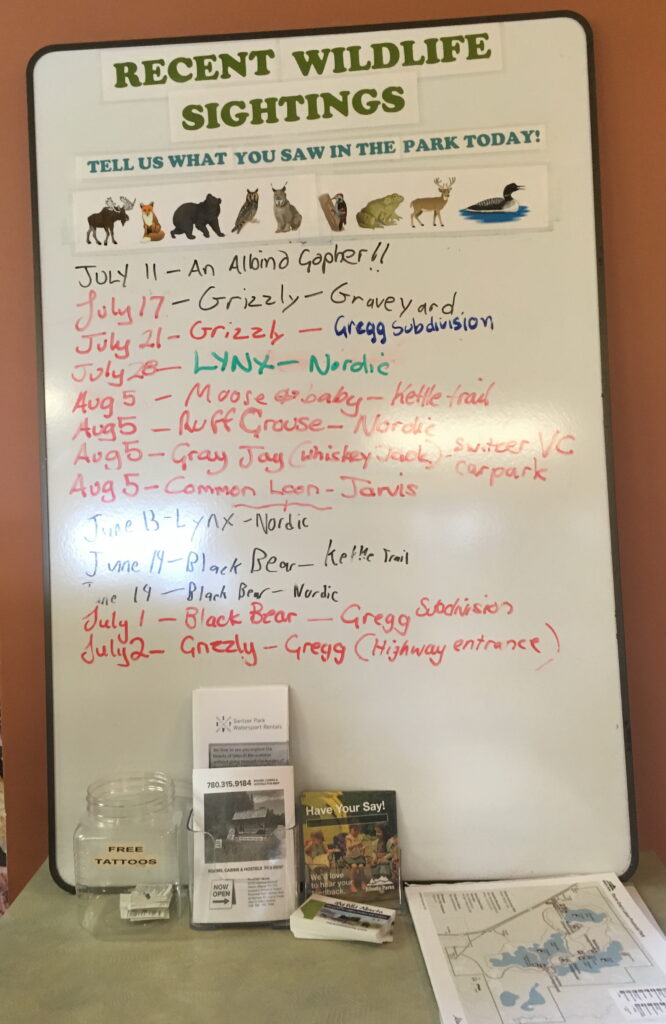 RECENT WILDLIFE
SIGHTINGS
TELL US WHAT YOU SAW IN THE PARK TODAY!
JULY 11 – An Albino Gopher!!
July 17 – Grizzly – Graveyard
July 21 – Grizzly – Gregg Subdivision
July 28 – LYNX – Nordic
Aug 5 – Moose & baby – Kettle trail
Aug 5 – Ruff Grouse – Nordic
Aug 5 – Gray Jay (Whiskey Jack) – Switzer VC carpark
Aug 5 – Common Loon – Jarvis
June 13 – Lynx – Nordic
June 14 – Black Bear – Kettle Trail
June 14 – Black Bear – Nordic
July 1 – Black Bear – Gregg Subdivision
July 2 – Grizzly – Gregg (Highway entrance)
Switzer Park
Watersport Rentals
780.315.9184
ROOMS, CABINS & HOSTELS
NOW
OPEN
FREE
TATTOOS
Have Your Say!
We'd love
to hear your
feedback.
Alberta Parks